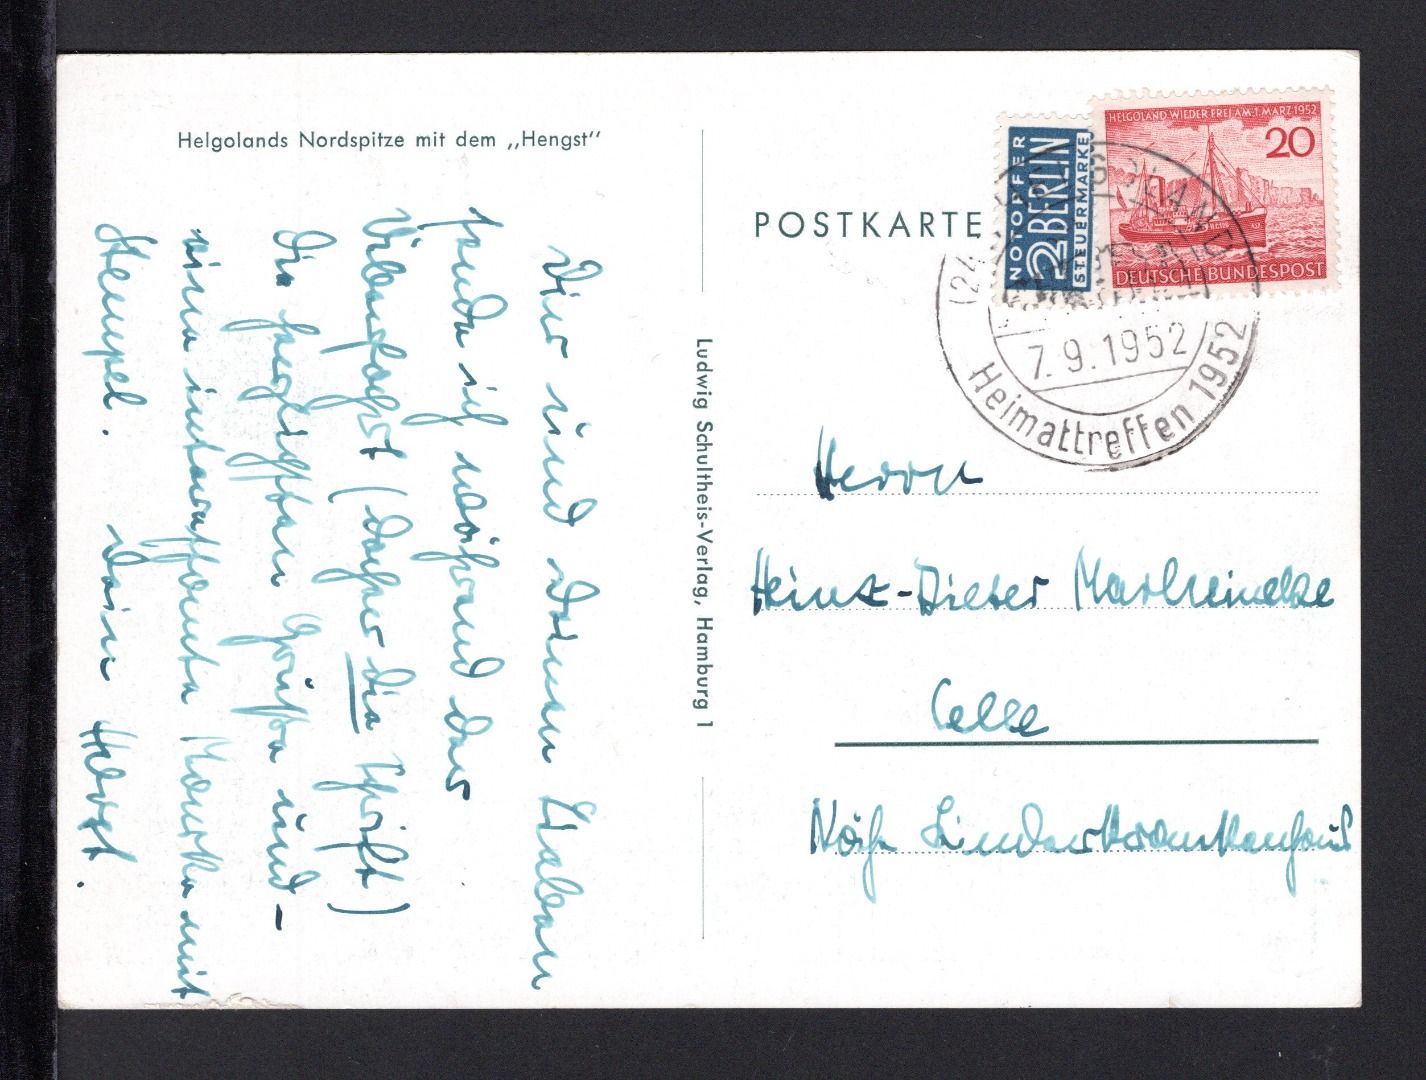 Helgolands Nordspitze mit dem „Hengst"
POSTKARTE
NOTOPFER
2 BERLIN
STEUERMARKE
HELGOLAND WIEDER FREI AM 1. MÄRZ 1952
20
DEUTSCHE BUNDESPOST
(24
7.9.1952
Heimattreffen 1952
Dir und deinen Lieben
sende ich während der
Überfahrt (daher die Schrift)
die herzlichsten Grüße und
eine interessante Marke mit
Stempel. Dein Horst.
Ludwig Schultheis-Verlag, Hamburg 1
Herrn
Heinz-Dieter Marheinecke
Celle